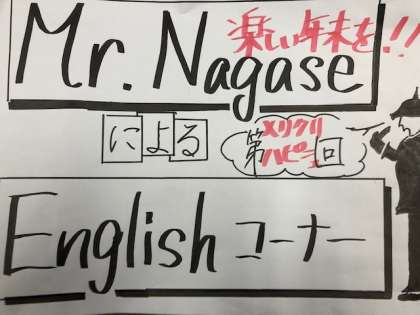 楽しい年末を!!
Mr. Nagase
による
第メリクリハピニュ回
English コーナー